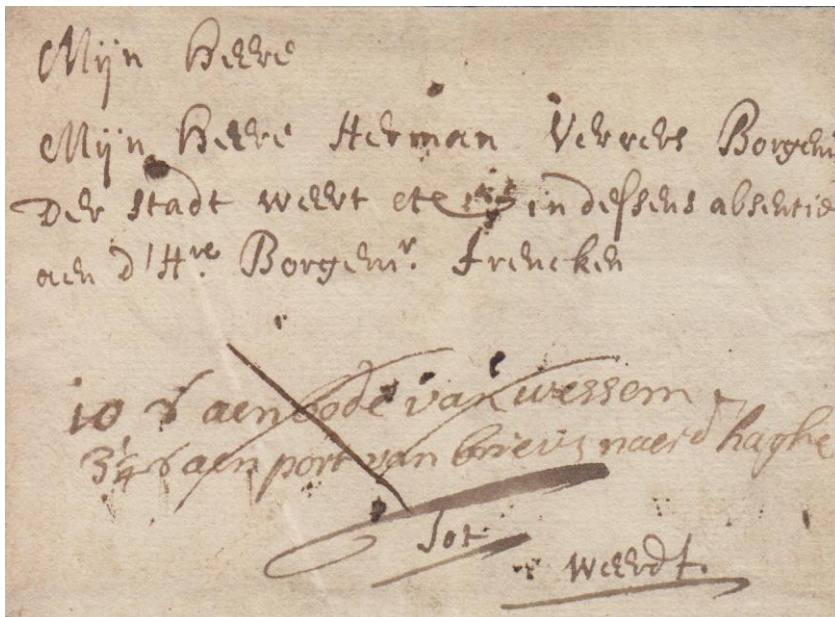 Mijn Heere
Mijn Heere Herman Verrers Borgem
Der Stadt Weert etc in dessens absentie
aen d'Hre Borgemr. Frencken
10 aen bode van wessem
3 1/4 aen port van brieven naer d haghe
Tot
Weerdt.